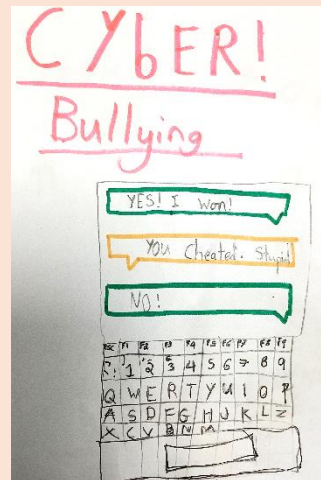 CYbER!
Bullying
YES! I won!
YOU Cheated. Stupid
NO!
F1 F2 F3 F4 F5 F6 F7 F8 F9
1 2 3 4 5 6 7 8 9
Q W E R T Y U I O P
A S D F G H J K L Z
X C V B N M